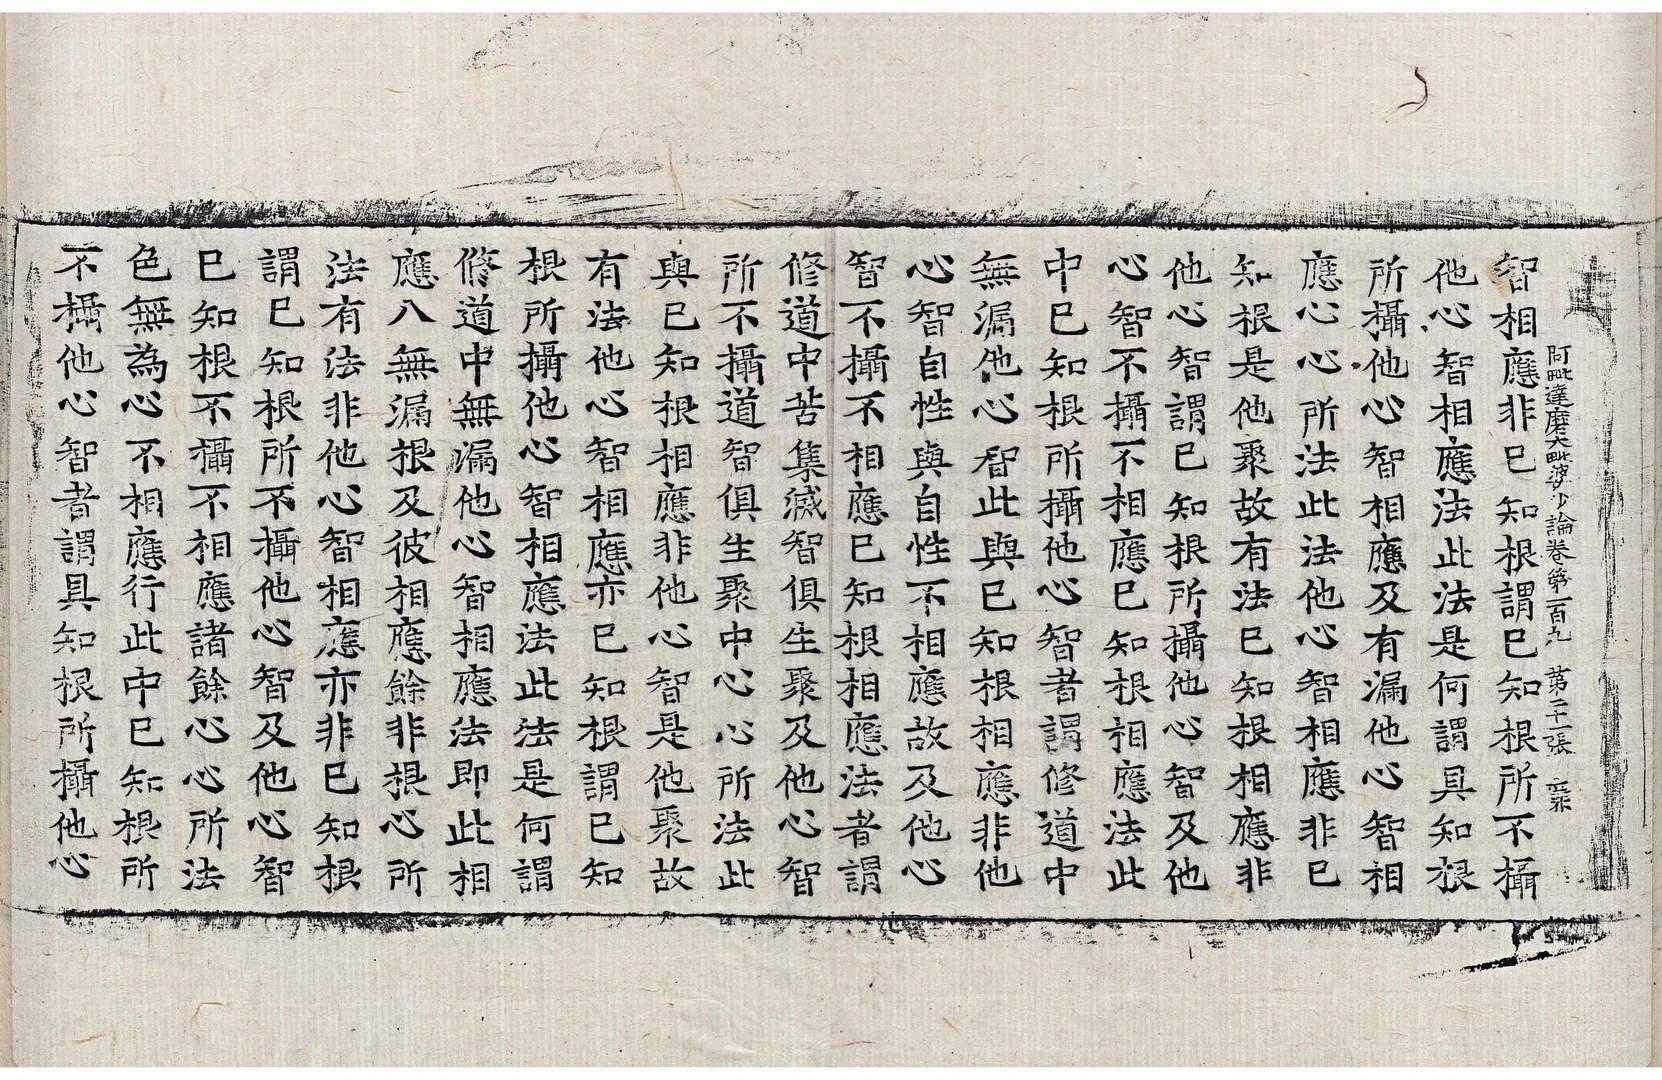 阿毗達磨大毗婆沙論卷第一百九 第二十一張
智相應非已知根謂已知根所不攝
他心智相應法此法是何謂具知根
所攝他心智相應及有漏他心智相
應心心所法此法他心智相應非已
知根是他聚故有法已知根相應非
他心智謂已知根所攝他心智及他
心智不攝不相應已知根相應法此
中已知根所攝他心智者謂修道中
無漏他心智此與已知根相應非他
心智自性與自性不相應故及他心
智不攝不相應已知根相應法者謂
修道中苦集滅智俱生聚及他心智
所不攝道智俱生聚中心心所法此
與已知根相應非他心智是他聚故
有法他心智相應亦已知根謂已知
根所攝他心智相應法此法是何謂
修道中無漏他心智相應法即此相
應八無漏根及彼相應餘非根心所
法有法非他心智相應亦非已知根
謂已知根所不攝他心智及他心智
已知根不攝不相應諸餘心心所法
色無為心不相應行此中已知根所
不攝他心智者謂具知根所攝他心